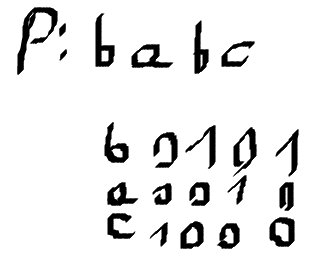 P: b a b c
b 0 1 0 1
a 0 0 1 0
c 1 0 0 0